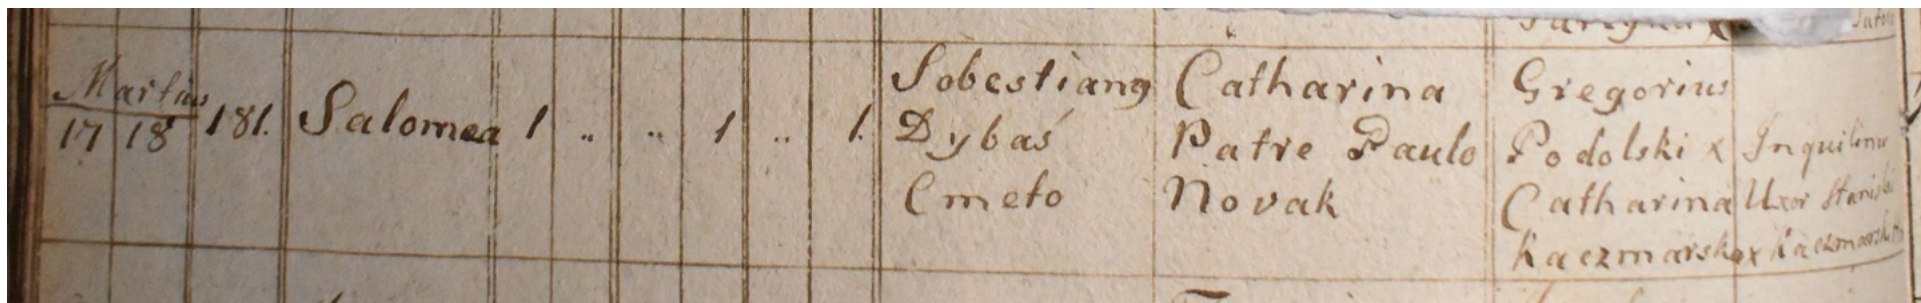 Martius
17 18 181. Salomea 1 .. .. 1 .. 1.
Sobestiang
Dybaś
Cmeto
Catharina
Patre Paulo
Novak
Gregorius
Podolski x
Catharina
Kaczmarska x
Inquilinus
Uxor